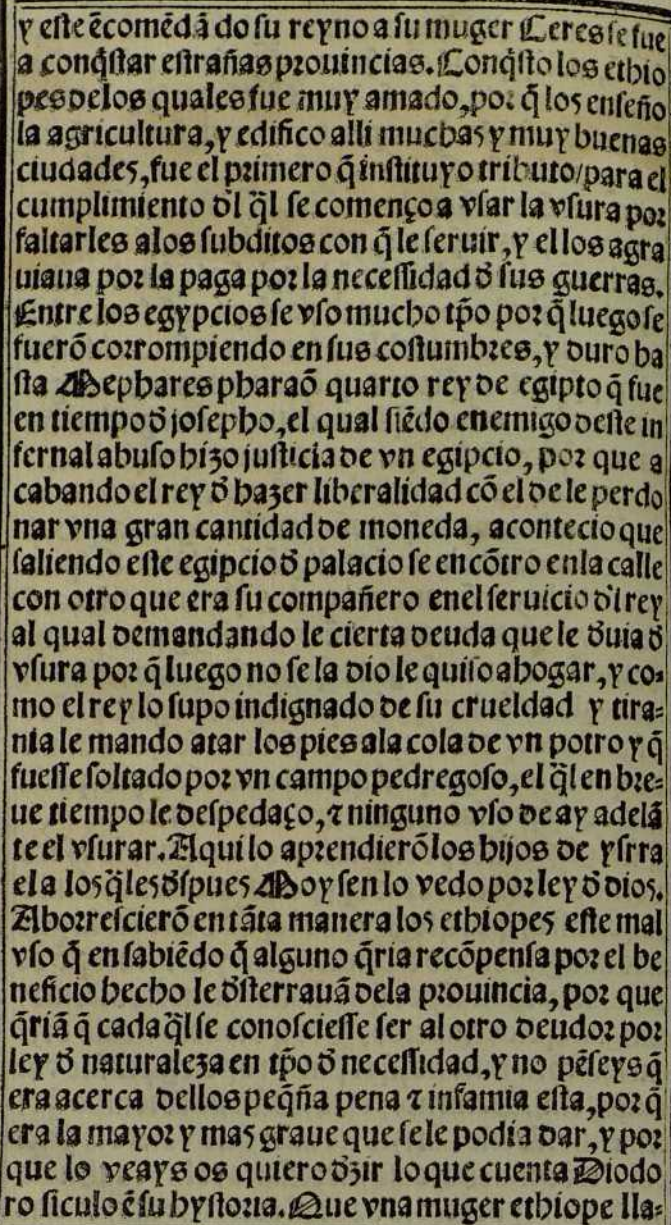 y este ẽcomẽdãdo su reyno a su muger Ceres se fue
a conq̃star estrañas prouincias. Conq̃sto los ethio
pes delos quales fue muy amado, por q̃ los enseño
la agricultura, y edifico alli muchas y muy buenas
ciudades, fue el primero q̃ instituyo tributo/para el
cumplimiento d̃l q̃l se començo a vsar la vsura por
faltarles alos subditos con q̃ le seruir, y el los agra
uiaua por la paga por la necessidad d̃ sus guerras.
Entre los egypcios se vso mucho tp̃o por q̃ luego se
fuerõ corrompiendo en sus costumbres, y duro ha
sta Mephares pharaõ quarto rey de egipto q̃ fue
en tiempo d̃ josepho, el qual siẽdo enemigo deste in
fernal abuso hizo justicia de vn egipcio, por que a
cabando el rey d̃ hazer liberalidad cõ el de le perdo
nar vna gran cantidad de moneda, acontecio que
saliendo este egipcio d̃ palacio se encõtro enla calle
con otro que era su compañero enel seruicio d̃l rey
al qual demandando le cierta deuda que le d̃uia d̃
vsura por q̃ luego no se la dio le quiso ahogar, y co-
mo el rey lo supo indignado de su crueldad y tira-
nia le mando atar los pies ala cola de vn potro y q̃
fuesse soltado por vn campo pedregoso, el q̃l en bre-
ue tiempo le despedaço, ⁊ ninguno vso de ay adelã
te el vsurar. Aqui lo aprendierõ los hijos de ysrra
el a los q̃les d̃spues Moysen lo vedo por ley d̃ dios.
Aborrescierõ en tãta manera los ethiopes este mal
vso q̃ en sabiẽdo q̃ alguno q̃ria recõpensa por el be
neficio hecho le d̃sterrauã dela prouincia, por que
q̃riã q̃ cada q̃l se conosciesse ser al otro deudor por
ley d̃ naturaleza en tp̃o d̃ necessidad, y no pẽseys q̃
era acerca dellos peq̃ña pena ⁊ infamia esta, por q̃
era la mayor y mas graue que se le podia dar, y por
que lo veays os quiero d̃zir lo que cuenta Diodo
ro siculo ẽ su hystoria. Que vna muger ethiope lla-